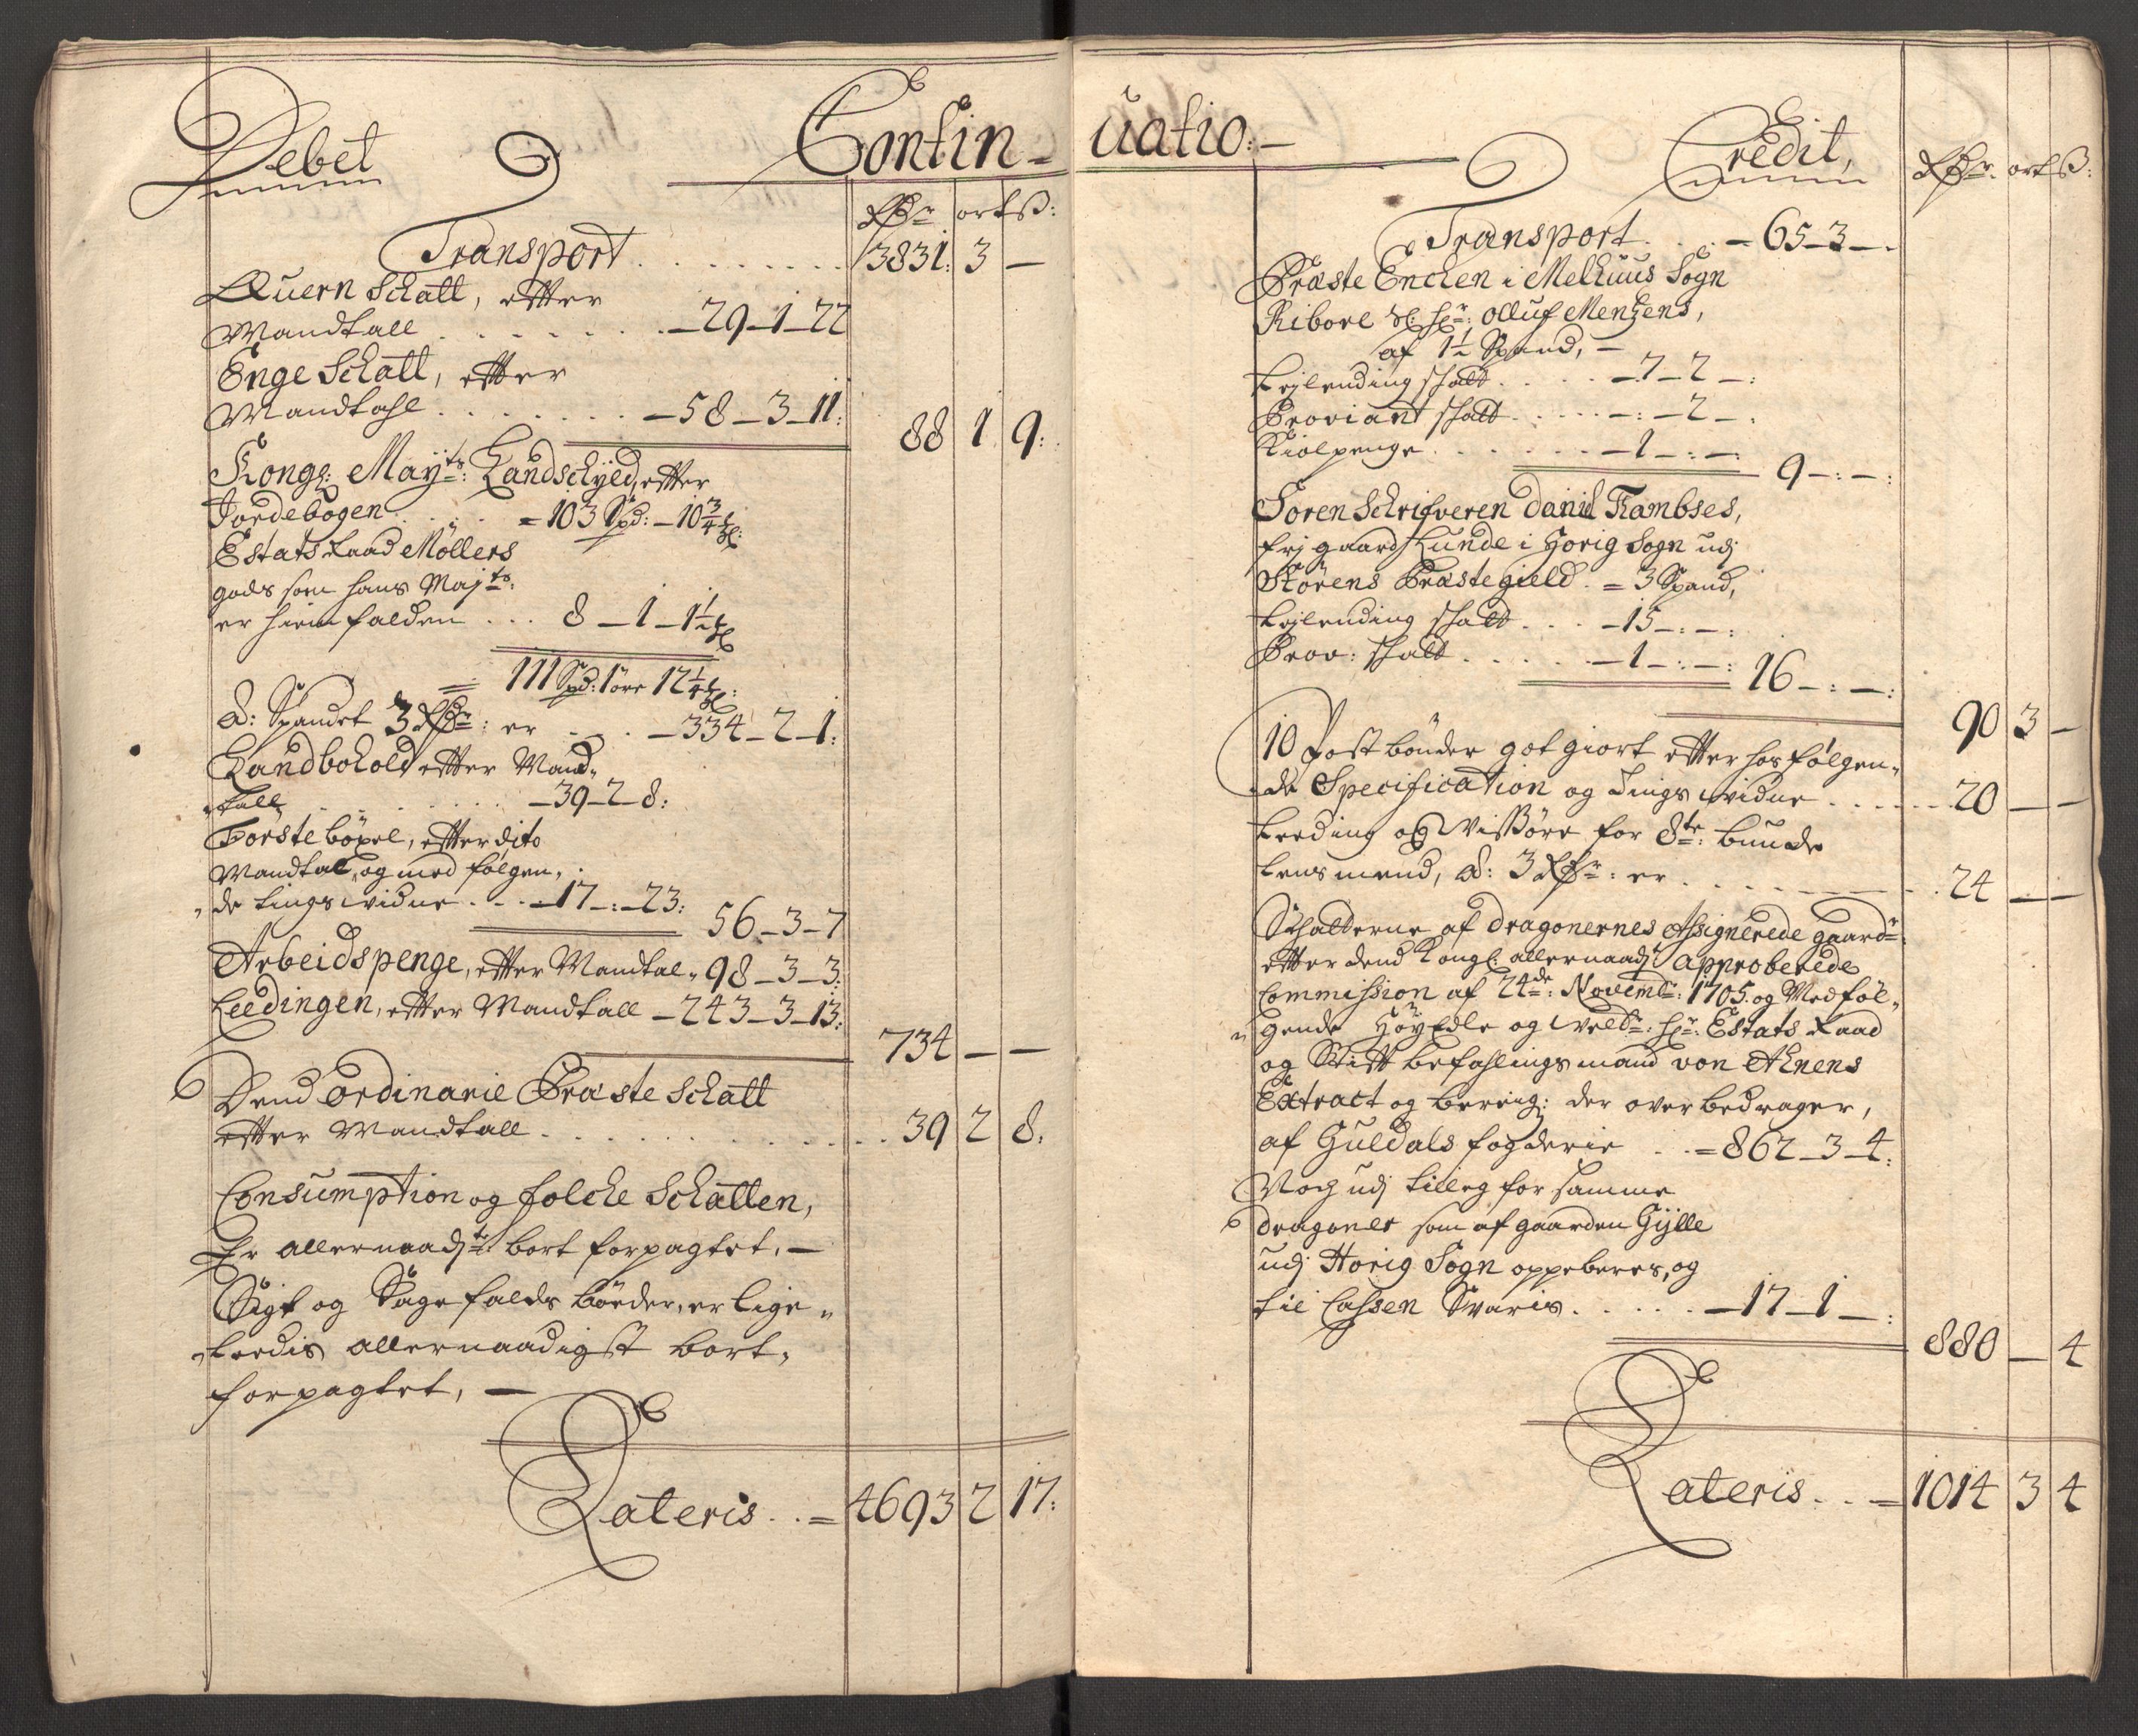 Debet
Contin-
Rdr ort ß:
Transport . . . . . . . . 3831: 3 —
Quern Schatt, efter
Mandtall . . . . . . . -29-1-22
Enge Schatt, efter
Mandtahl . . . . . . . -58-3-11: 88 1 9:
Kongl: Mayts: Landschyld, efter
Jordebogen . . . . =103 Spd: -10 3/4
Estats Raad Möllers
gods som hans Majts:
er hiemfalden . . . 8-1-1 1/2
= 111 Spd: 1 öre 12 1/4
a: Spandet 3 Rdr: er . . . -334-2-1:
Landbohold efter Mand-
tall . . . . . . . -39-2-8:
Förstebögsel, efter dito
Mandtal, og med følgen-
de tings widne . . . -17-:-23: 56-3-7
Arbeidspenge, efter Mandtal - 98-3-3:
Leedingen, efter Mandtall -243-3-13:
734 — —
Dend ordinarie Præste Schatt
efter Mandtall . . . . . . . . . . 39 2 8:
Consumption og folche Schatten,
Er allernaadst bort forpagtet. —
Sigt og Sagefalds bøder, er lige-
leedis allernaadigst bort-
forpagtet, —
Lateris . . = 4693 2 17:
uatio:-
Credit,
Rdr: ort ß:
Transport . . . - 65-3-.
Præste Enchen i Melhuus Sogn
Ribore Sl: Hr: Olluf Mentzens,
af 1 1/2 Spand, —
Leylending schatt . . . . -7-2-:
Proviant schatt . . . . -:-2-.
Kiölpenge . . . . . . -1-:-: 9-:-:
Soren Schrifveren Daniel Rambses,
frj gaard Lunde i Horig Sogn udj
Störens Præstegield. = 3 Spand,
Leylending schatt . . . -15-:-:
Prov: schatt . . . . . -1-:-: 16-:-:
90 3 —
10 Postbønder got giort efter hosfølgen-
de Specification og Tings widne . . . . . 20 — —
Leeding og Wissøre for 8te: bunde
Lensmend, a: 3 Rdr: er . . . . . . . 24 — —
Schatterne af Dragonernes Assignerede gaardr
efter dend Kongl: allernaadst approberede
Commission af 24de: Novembr: 1705. og Medföl-
gende HöyEdle og Welbr: Hr: Estats Raad
og Stiftbefahlingsmand von Ahnens
Extract og beregn: der overbedrager,
af Guldals fogderie . . = 862-3-4:
Noch udj tilleg for samme
Dragoner som af gaarden Gylle
udj Horig Sogn oppeberes, og
til Cassen Svaris . . . . . -17-1-:
880 — 4
Lateris . . = 1014 3 4